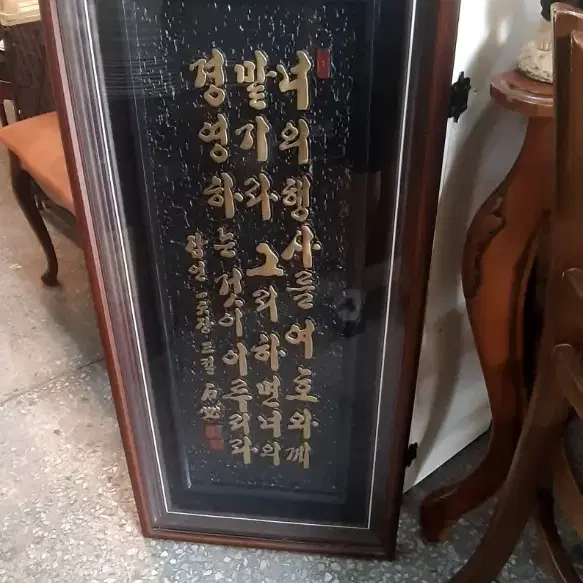 너의 행사를 여호와께
맡기라 그리하면 너의
경영하는 것이 이루리라
잠언 一六장 三절 石